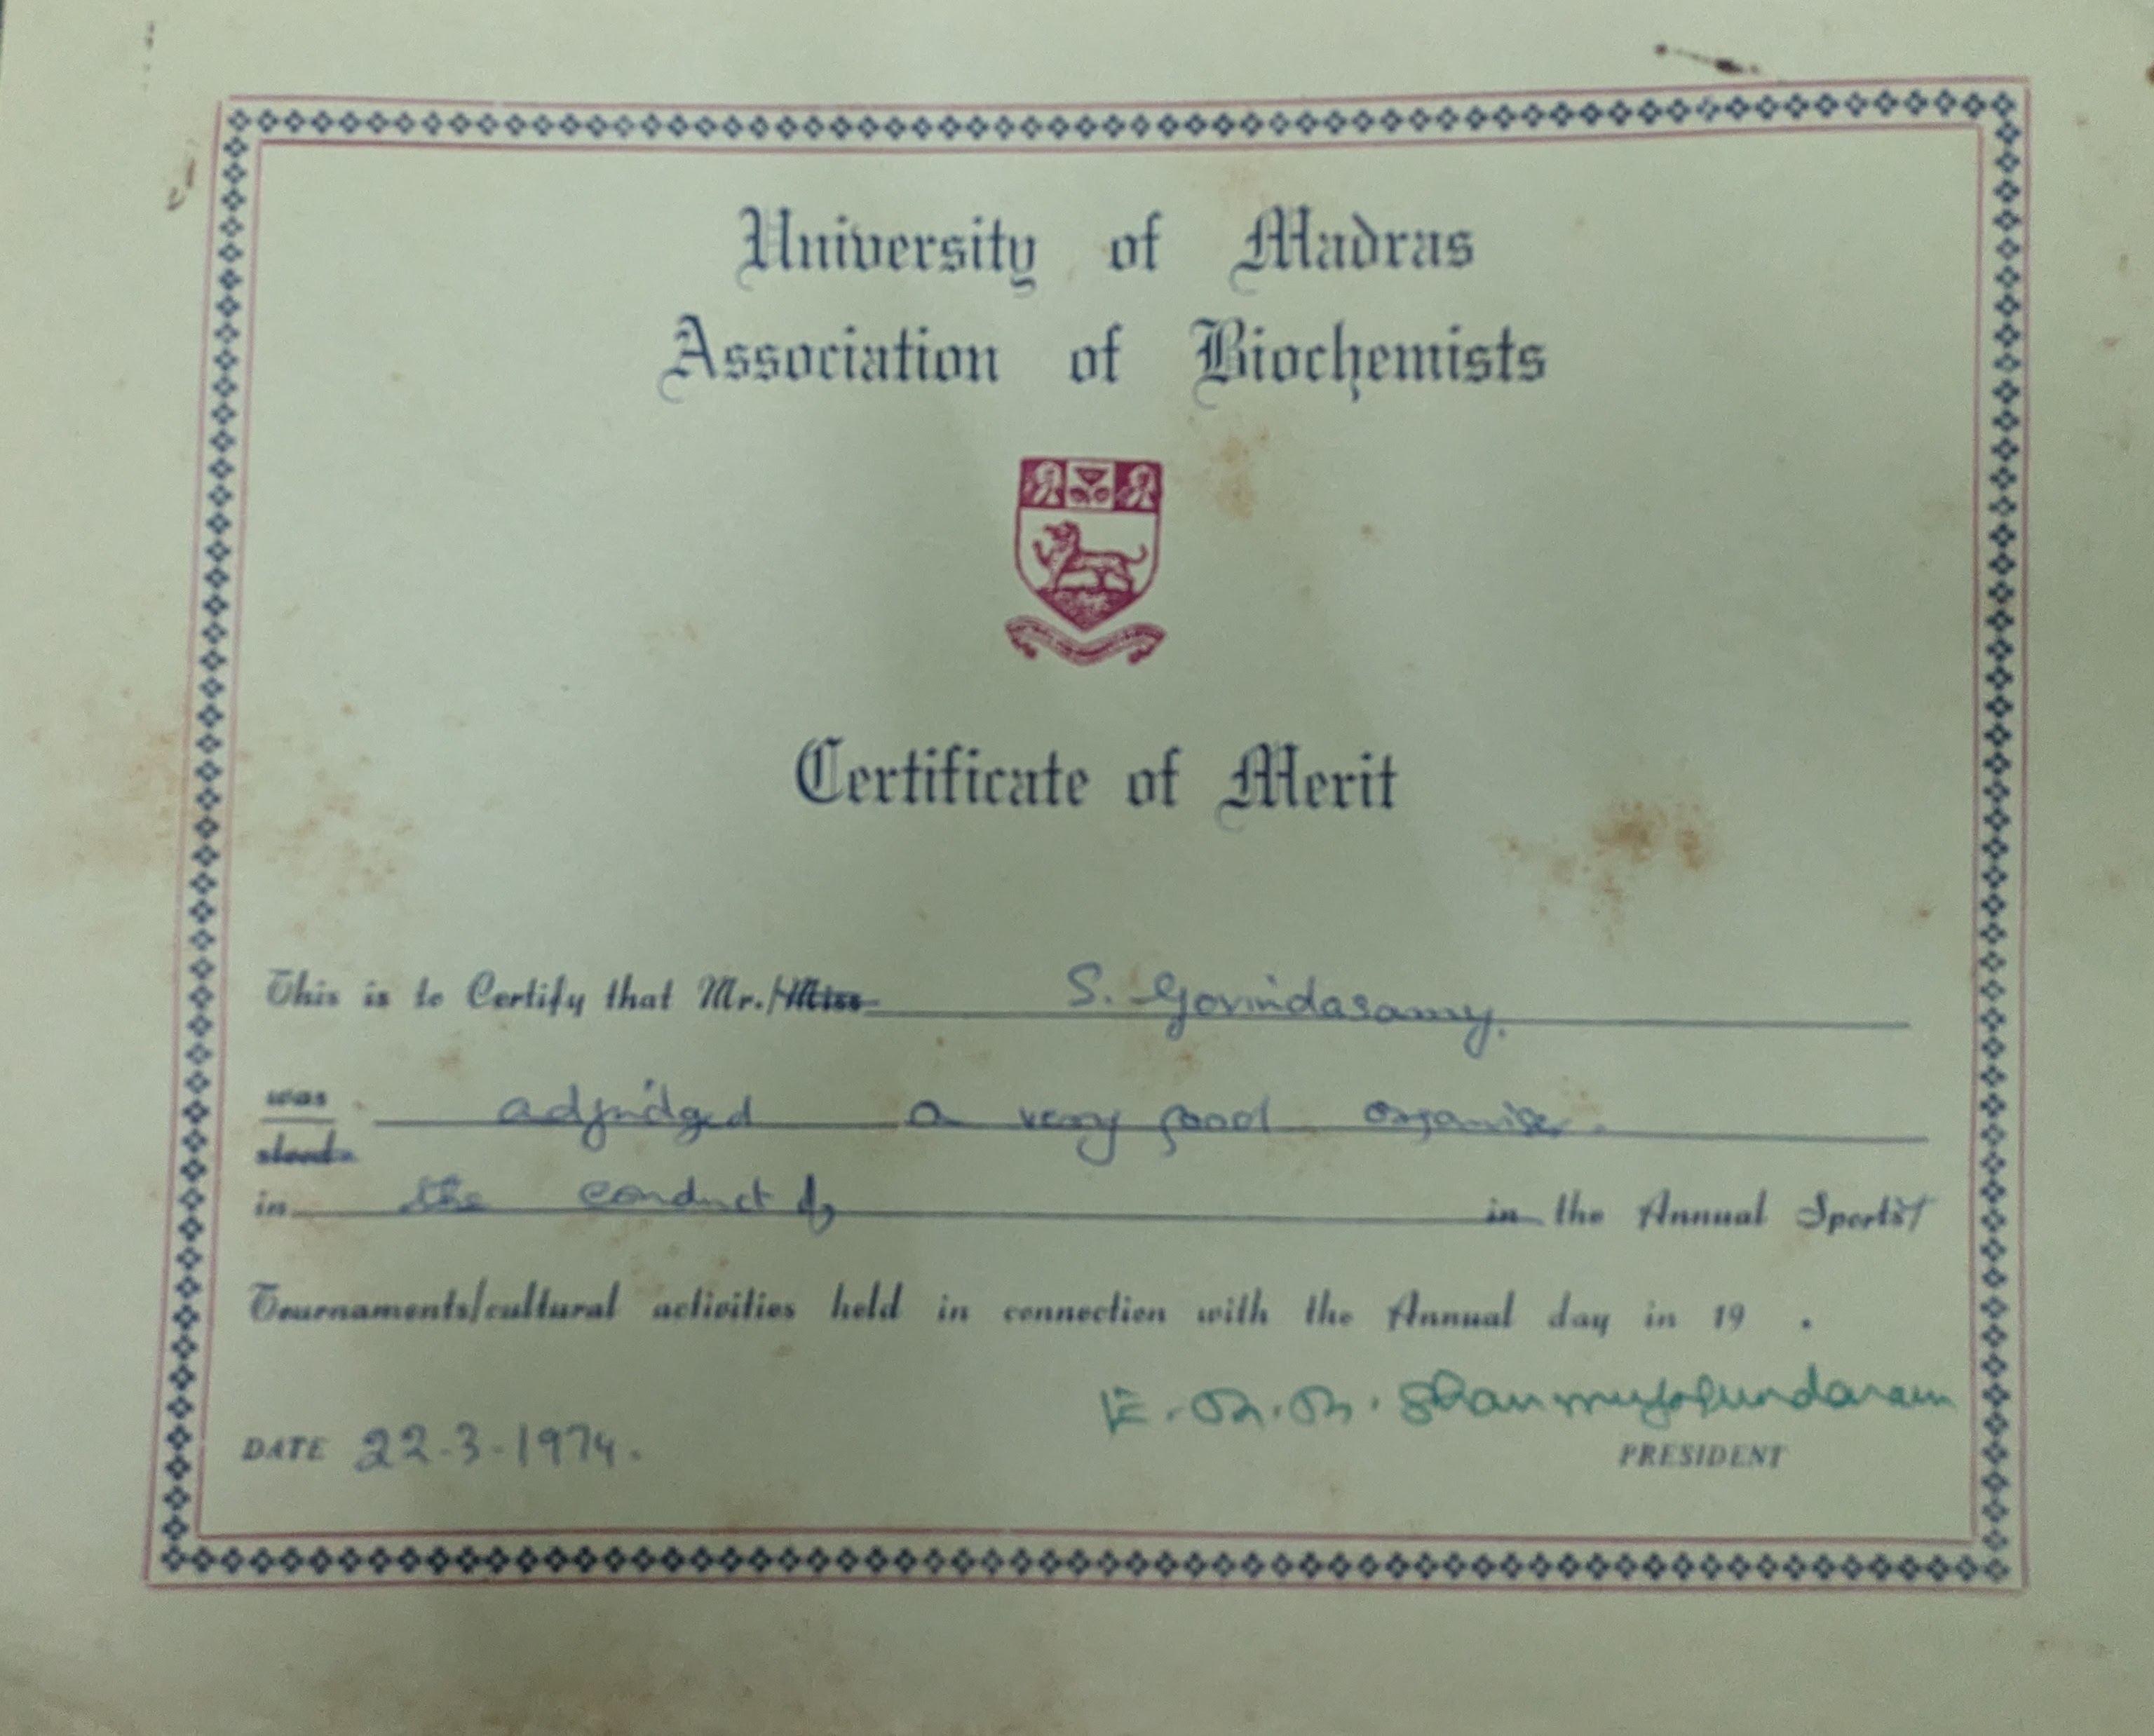 University of Madras
Association of Biochemists
Certificate of Merit
This is to Certify that Mr./Miss S. Govindasamy.
was adjudged a very good organiser.
stood
in the conduct of in the Annual Sports/
Tournaments/cultural activities held in connection with the Annual day in 19 .
Shanmugasundaram
DATE 22-3-1974.
PRESIDENT